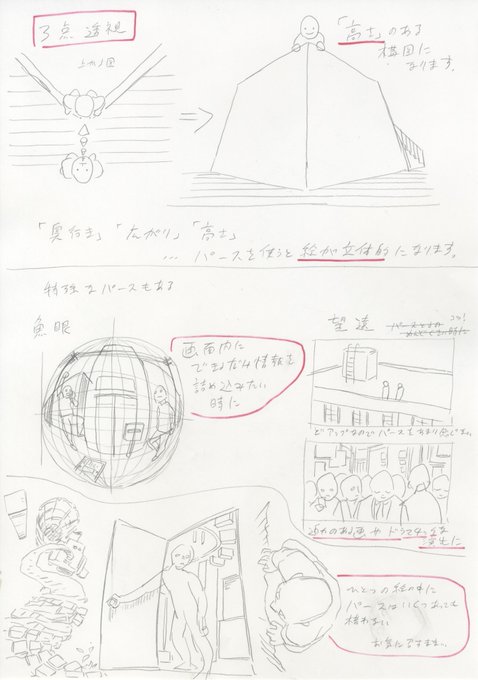 3点透視
上から図
「高さ」のある
構図に
なります。
「奥行き」「広がり」「高さ」
… パースを使うと 絵が立体的になります。
特殊なパースもある
魚眼
画面内に
できるだけ情報を
詰め込みたい
時に
望遠
コツ!
どアップなのでパースをあまり感じない
迫力のある画やドラマチックな
演出に
ひとつの絵の中に
パースはいくつあっても
構わない
お気に召すまま…